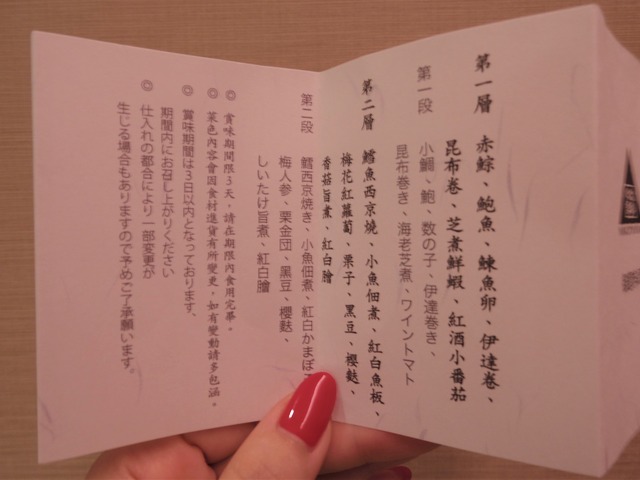 第一層 赤鯮、鮑魚、鰊魚卵、伊達巻、
昆布卷、芝煮鮮蝦、紅酒小番茄
第一段 小鯛、鮑、数の子、伊達巻き、
昆布巻き、海老芝煮、ワイントマト
第二層 鱈魚西京燒、小魚佃煮、紅白魚板、
梅花紅蘿蔔、栗子、黑豆、櫻麩、
香菇旨煮、紅白膾
第二段 鱈西京焼き、小魚佃煮、紅白かまぼ
梅人参、栗金団、黒豆、櫻麩、
しいたけ旨煮、紅白膾
◎ 賞味期間限3天，請在期限內食用完畢。
◎ 菜色內容會因食材進貨有所變更，如有變動請多包涵。
◎ 賞味期間は3日以内となっております、
期間内にお召し上がりください
◎ 仕入れの都合により一部変更が
生じる場合もありますので予めご了承願います。